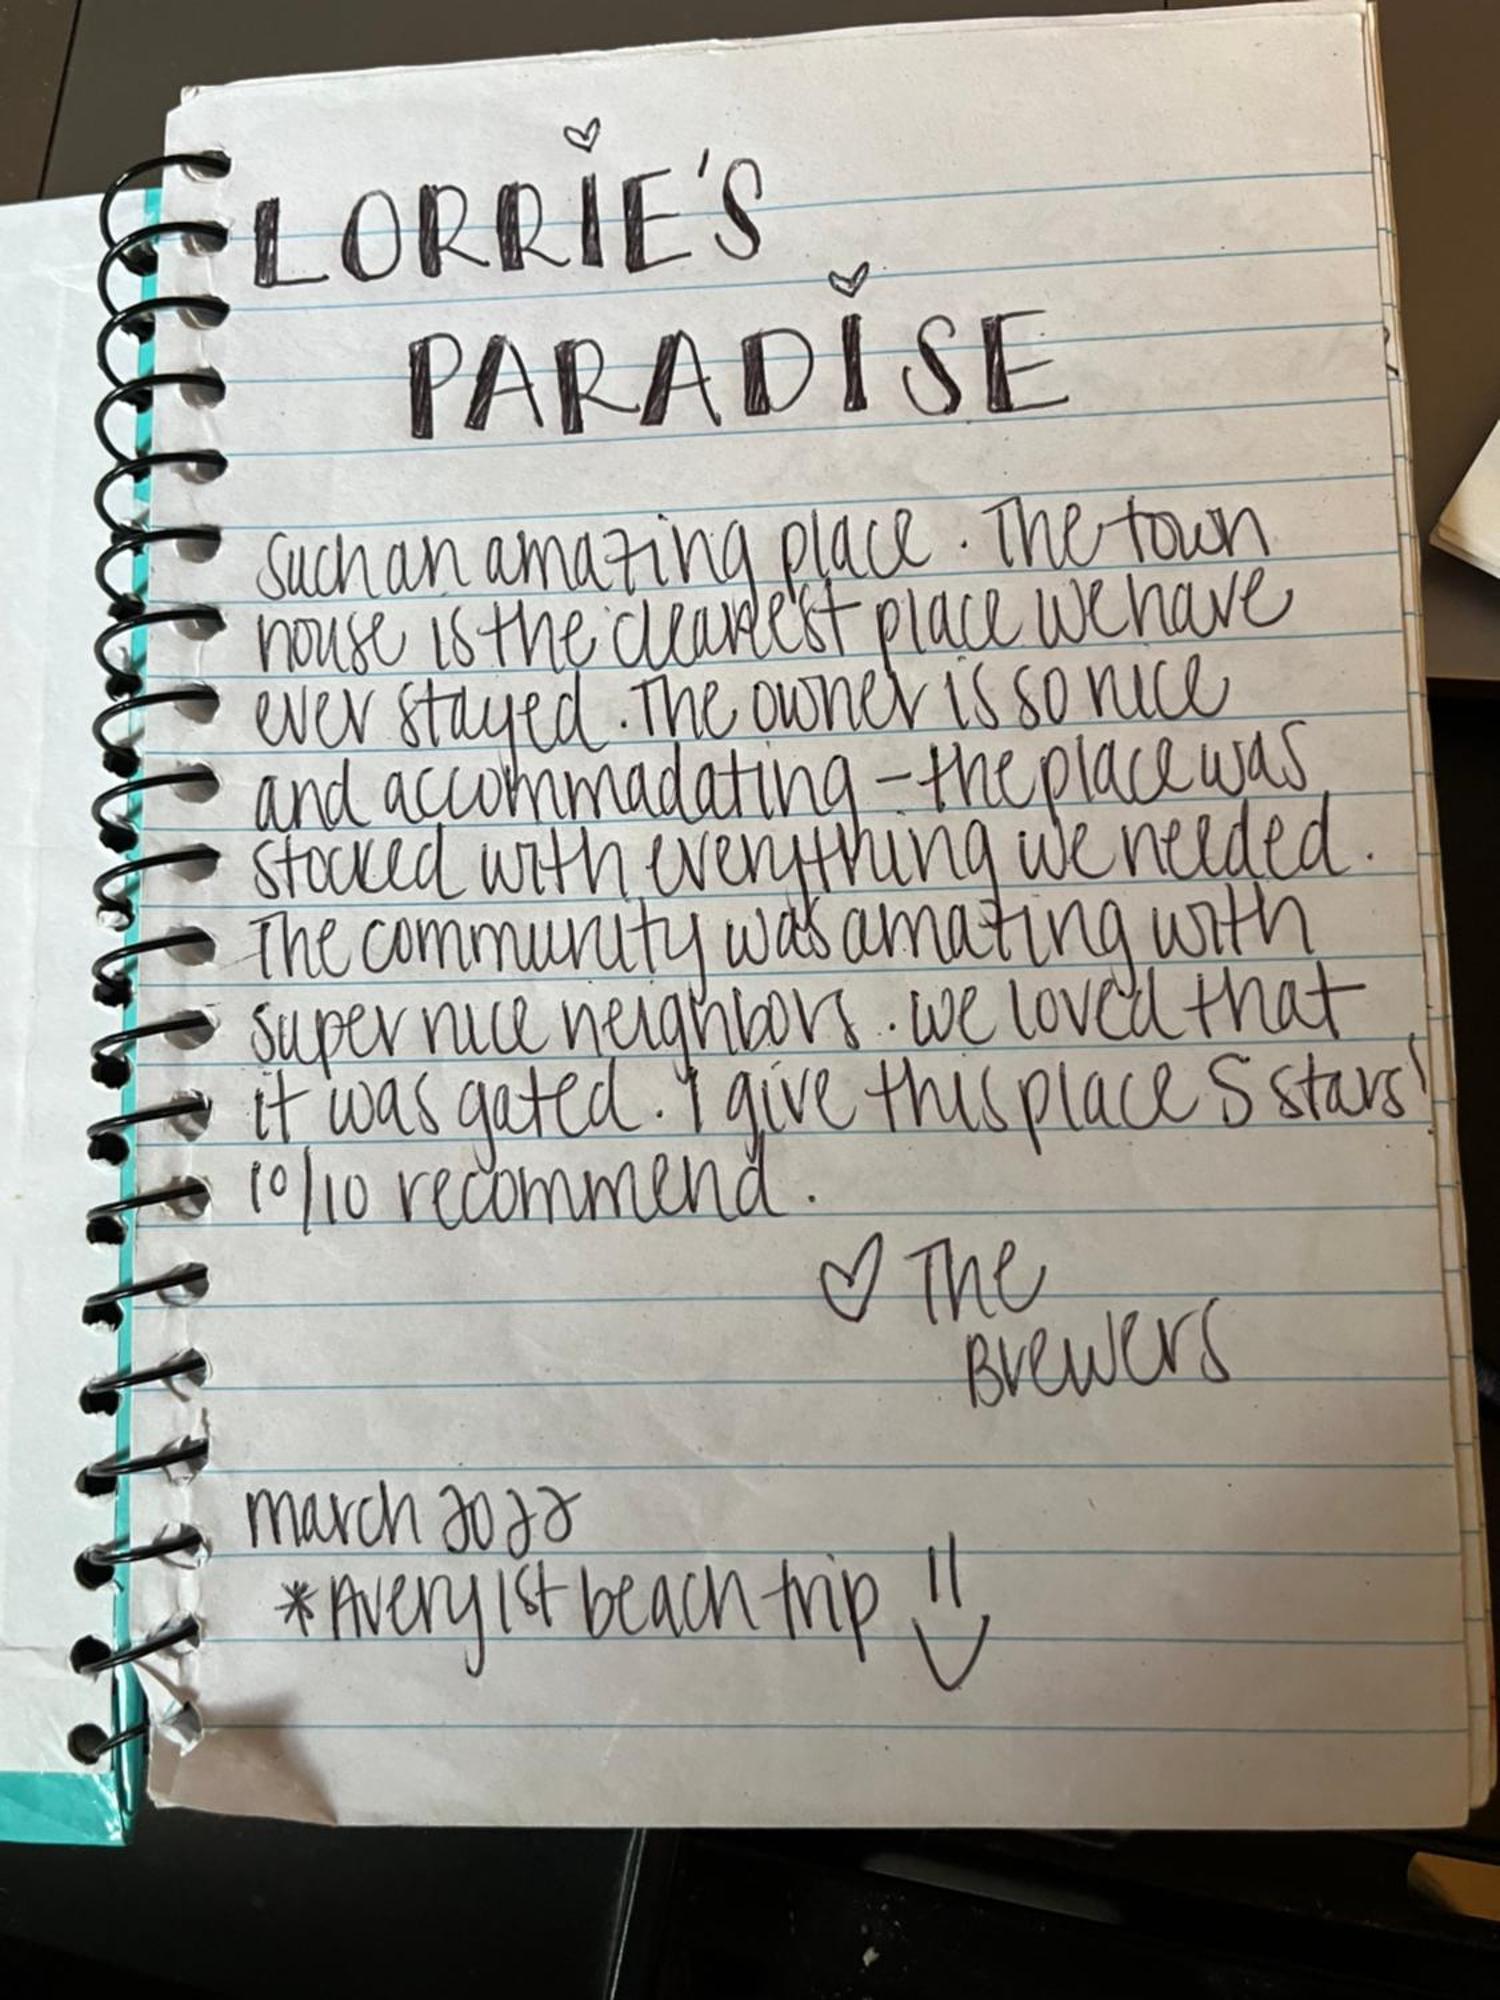 LORRIE'S
PARADISE
Such an amazing place. The town
house is the cleanest place we have
ever stayed. The owner is so nice
and accommadating - the place was
stocked with everything we needed.
The community was amazing with
super nice neighbors. we loved that
it was gated. I give this place 5 stars!
10/10 recommend.
♡ The
Brewers
march 2022
*Avery 1st beach trip